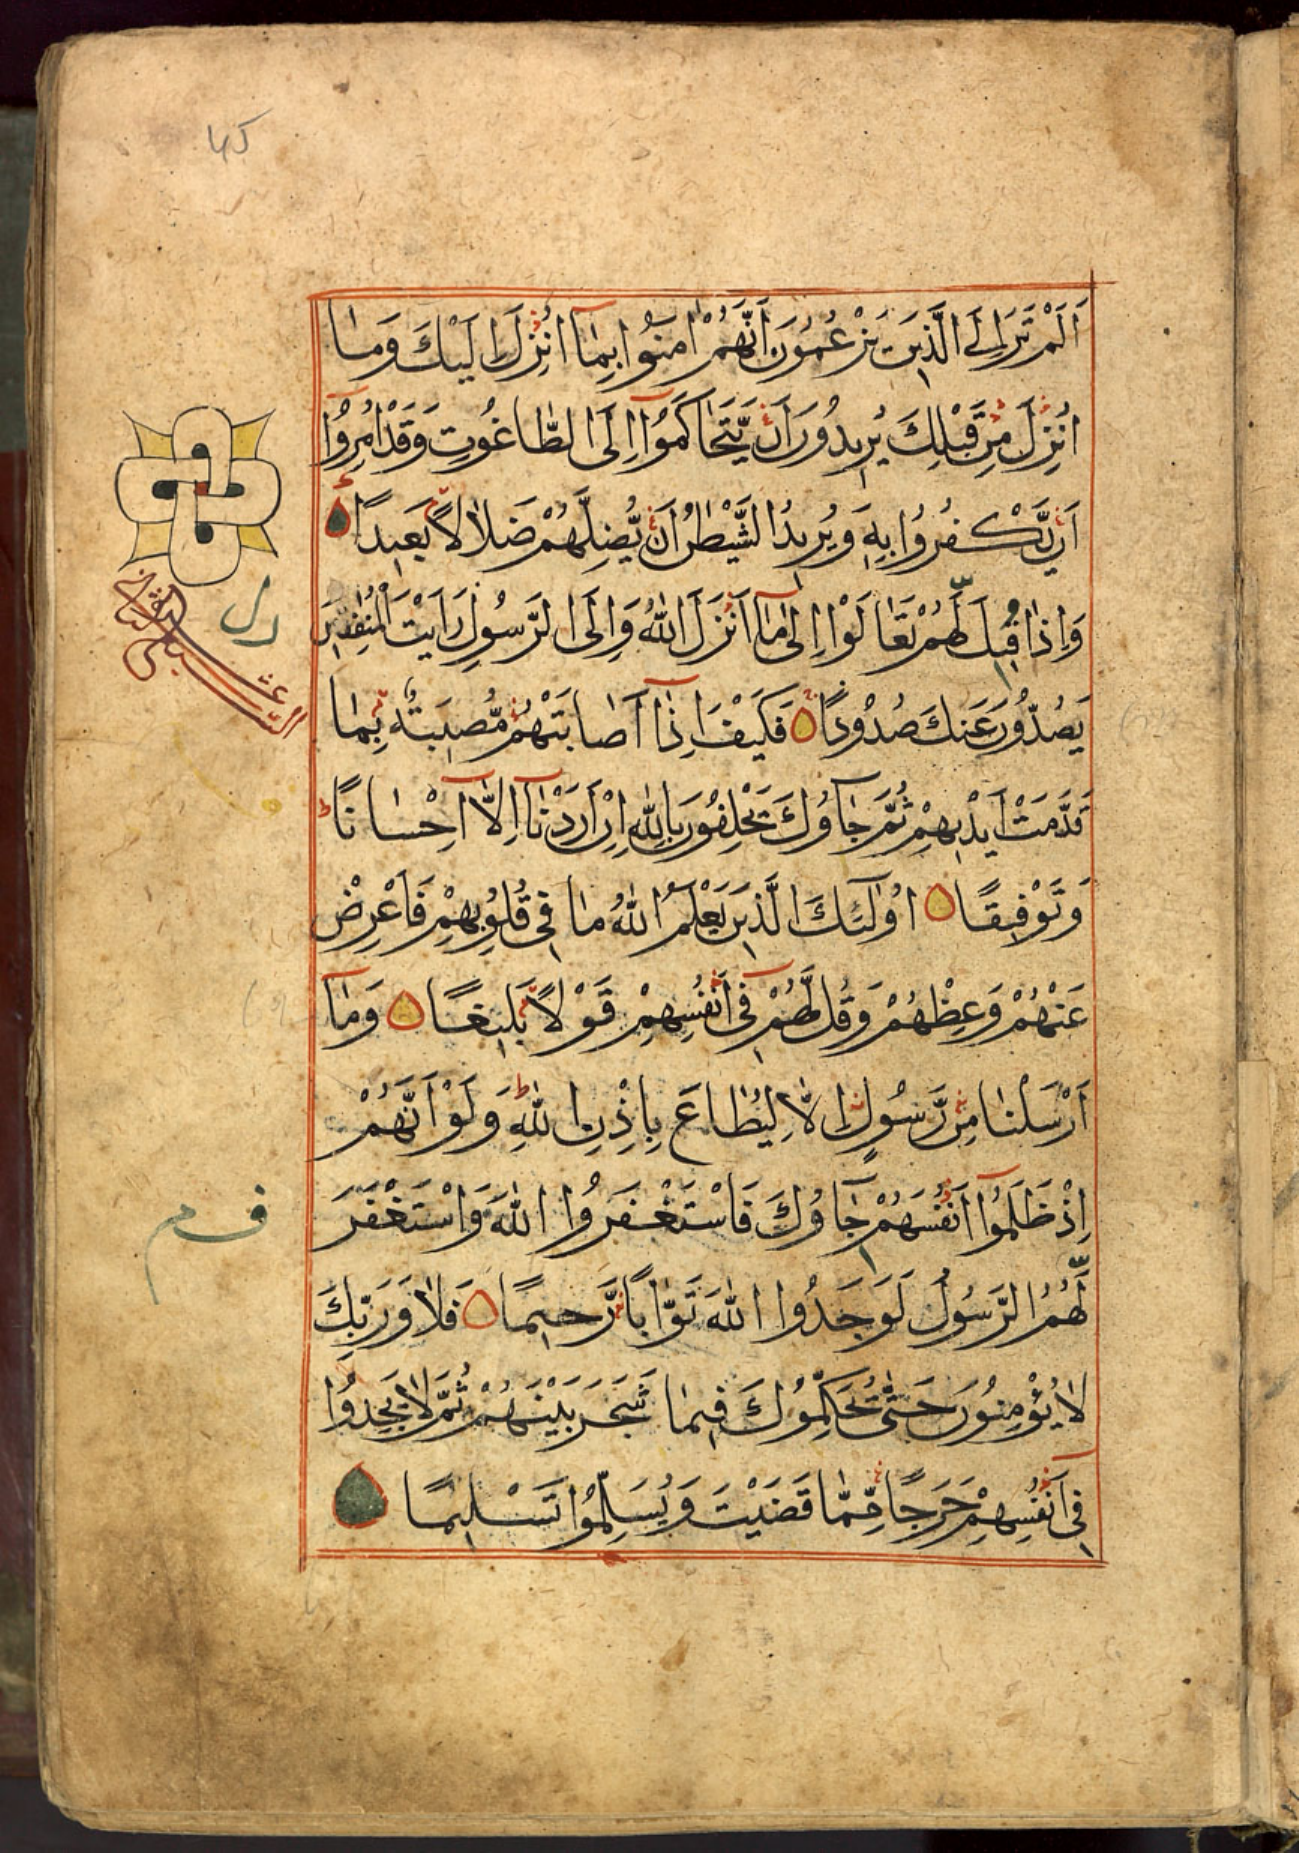 اَلَمْ تَرَ اِلَى الَّذِينَ يَزْعُمُونَ اَنَّهُمْ اٰمَنُوا بِمَٓا اُنْزِلَ اِلَيْكَ وَمَا
اُنْزِلَ مِنْ قَبْلِكَ يُرِيدُونَ اَنْ يَّتَحَاكَمُوٓا اِلَى الطَّاغُوتِ وَقَدْ اُمِرُوٓا
اَنْ يَّكْفُرُوا بِهِ وَيُرِيدُ الشَّيْطٰنُ اَنْ يُّضِلَّهُمْ ضَلَالًا بَعِيدًا
وَاِذَا قِيلَ لَهُمْ تَعَالَوْا اِلٰى مَٓا اَنْزَلَ اللّٰهُ وَاِلَى الرَّسُولِ رَاَيْتَ الْمُنٰفِقِينَ
يَصُدُّونَ عَنْكَ صُدُودًا فَكَيْفَ اِذَٓا اَصَابَتْهُمْ مُّصِيبَةٌ بِمَا
قَدَّمَتْ اَيْدِيهِمْ ثُمَّ جَاؤُكَ يَحْلِفُونَ بِاللّٰهِ اِنْ اَرَدْنَٓا اِلَّٓا اِحْسَانًا
وَتَوْفِيقًا اُولٰٓئِكَ الَّذِينَ يَعْلَمُ اللّٰهُ مَا فِي قُلُوبِهِمْ فَاَعْرِضْ
عَنْهُمْ وَعِظْهُمْ وَقُلْ لَّهُمْ فِٓي اَنْفُسِهِمْ قَوْلًا بَلِيغًا وَمَٓا
اَرْسَلْنَا مِنْ رَّسُولٍ اِلَّا لِيُطَاعَ بِاِذْنِ اللّٰهِ وَلَوْ اَنَّهُمْ
اِذْ ظَلَمُوٓا اَنْفُسَهُمْ جَاؤُكَ فَاسْتَغْفَرُوا اللّٰهَ وَاسْتَغْفَرَ
لَهُمُ الرَّسُولُ لَوَجَدُوا اللّٰهَ تَوَّابًا رَّحِيمًا فَلَا وَرَبِّكَ
لَا يُؤْمِنُونَ حَتّٰى يُحَكِّمُوكَ فِيمَا شَجَرَ بَيْنَهُمْ ثُمَّ لَا يَجِدُوا
فِٓي اَنْفُسِهِمْ حَرَجًا مِّمَّا قَضَيْتَ وَيُسَلِّمُوا تَسْلِيمًا